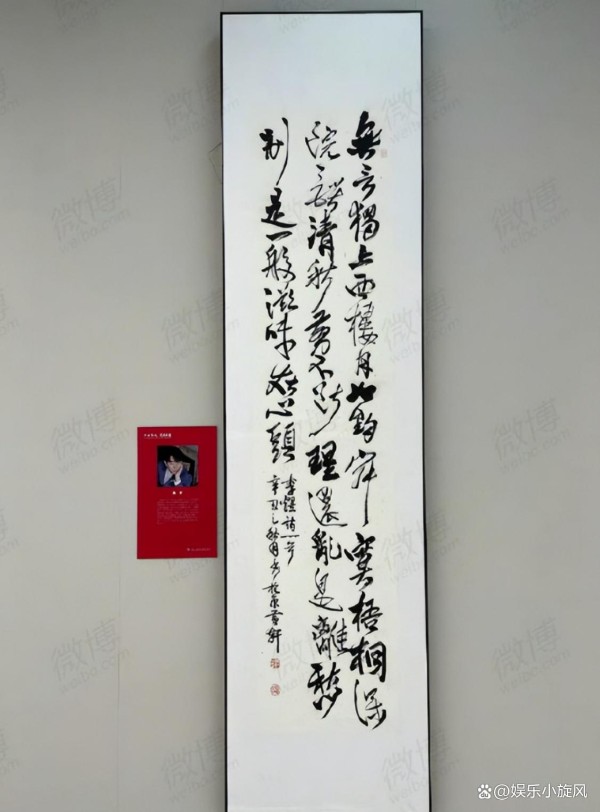 無言獨上西樓月如鉤寂寞梧桐深
院鎖清秋剪不斷理還亂是離愁
別是一般滋味在心頭
李煜詩一首
辛丑之秋月書於京軒
微博
weibo.com
@娱乐小旋风